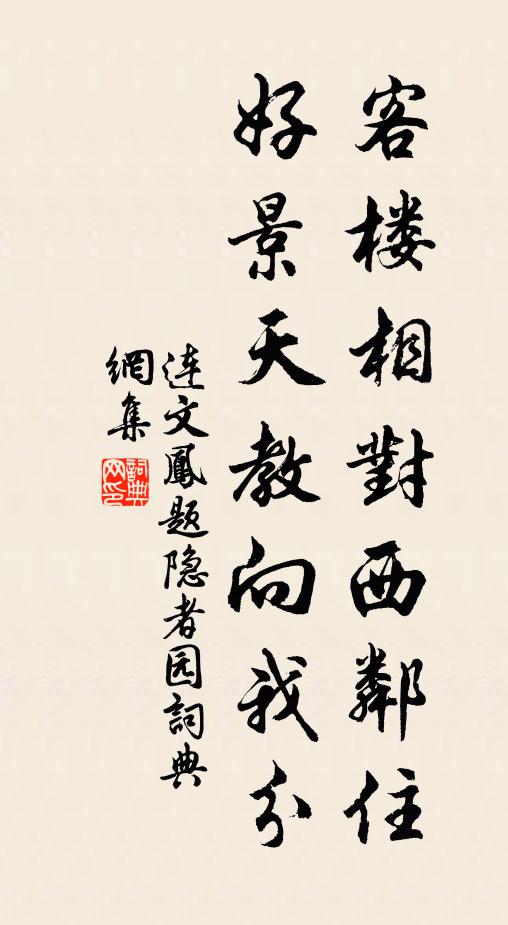 客楼相對西鄰住
好景天教向我分
连文鳳题隐者园詞典
網集
詞典
网印